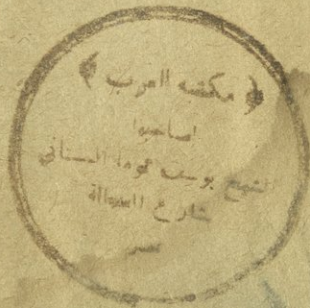 ﴿ مكتبه العرب ﴾
لصاحبها
الشيخ يوسف توما البستاني
شارع الفجالة
بمصر